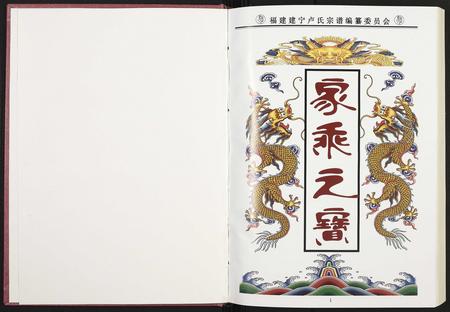 福建建宁卢氏宗谱编纂委员会
家乘之寶
1